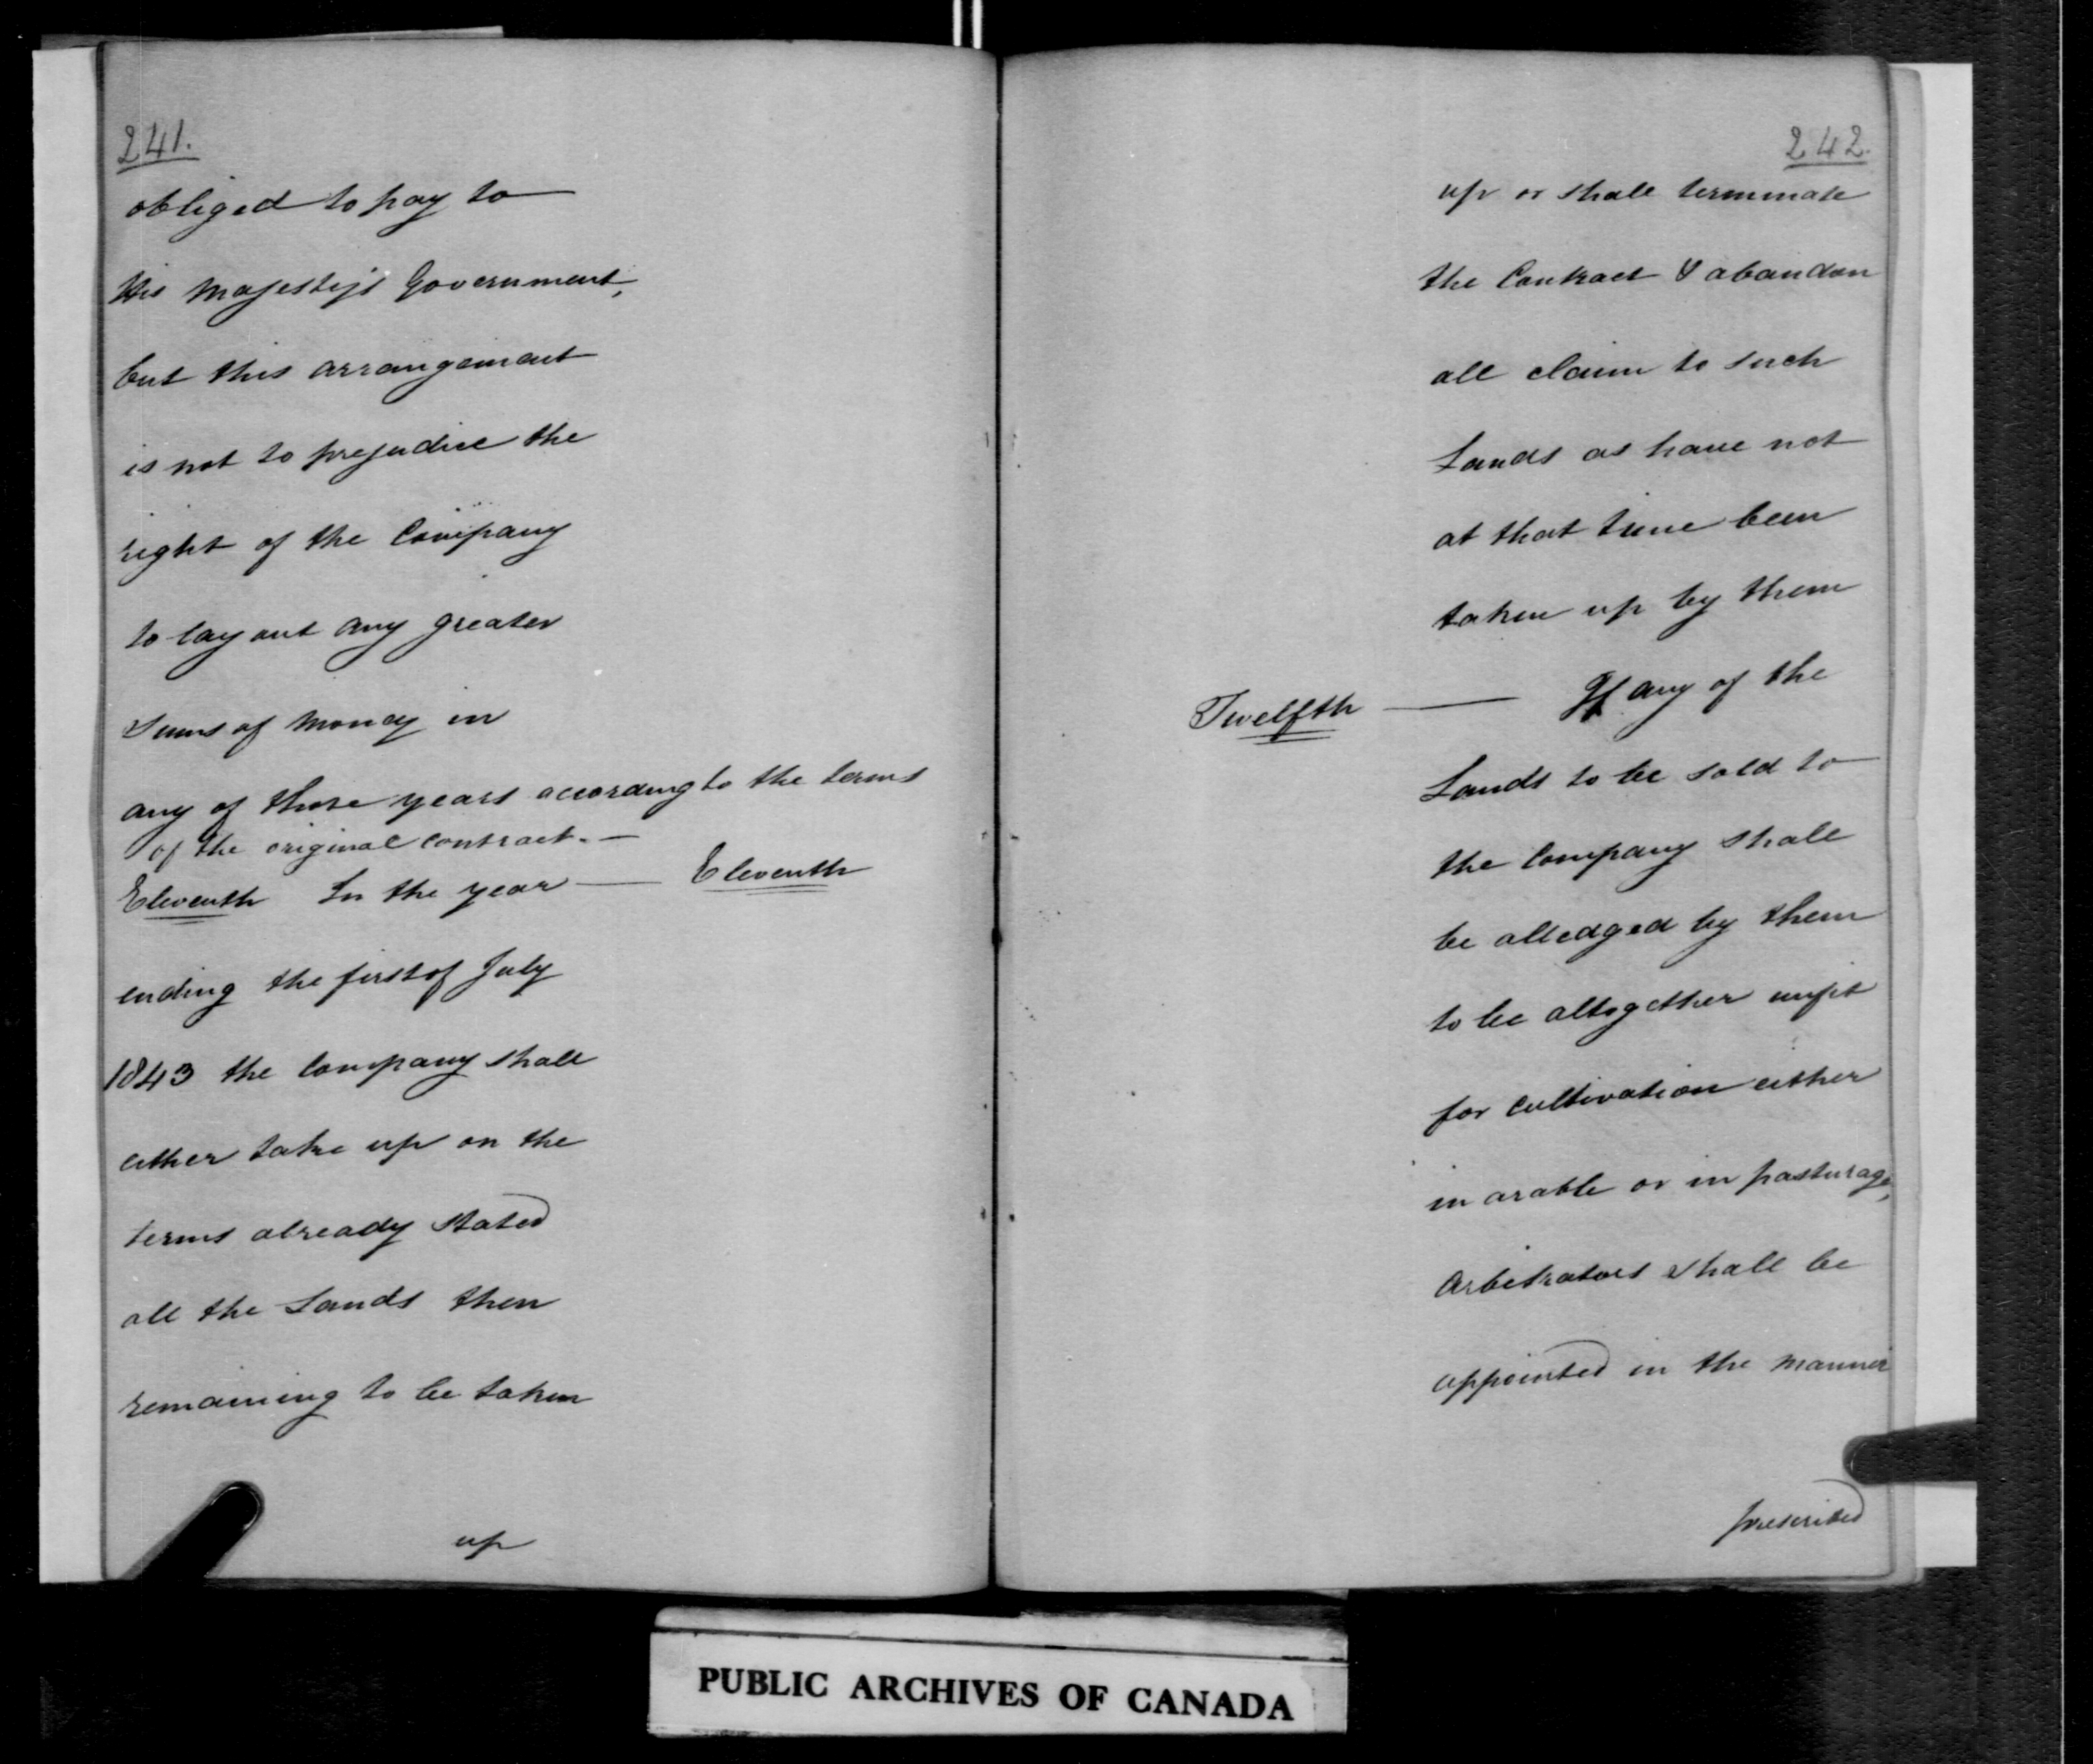 241.
obliged to pay to
His Majesty's Government,
but this arrangement
is not to prejudice the
right of the Company
to lay out any greater
Sums of Money in
any of those years according to the terms
of the original contract. —
Eleventh In the year — Eleventh
ending the first of July
1843 the Company shall
either take up on the
terms already stated
all the Lands then
remaining to be taken
up
242.
up or shall terminate
the Contract & abandon
all claim to such
Lands as have not
at that time been
taken up by them
Twelfth — If any of the
Lands to be sold to
the Company shall
be alledged by them
to be altogether unfit
for cultivation either
in arable or in pasturage,
Arbitrators shall be
appointed in the manner
prescribed
PUBLIC ARCHIVES OF CANADA